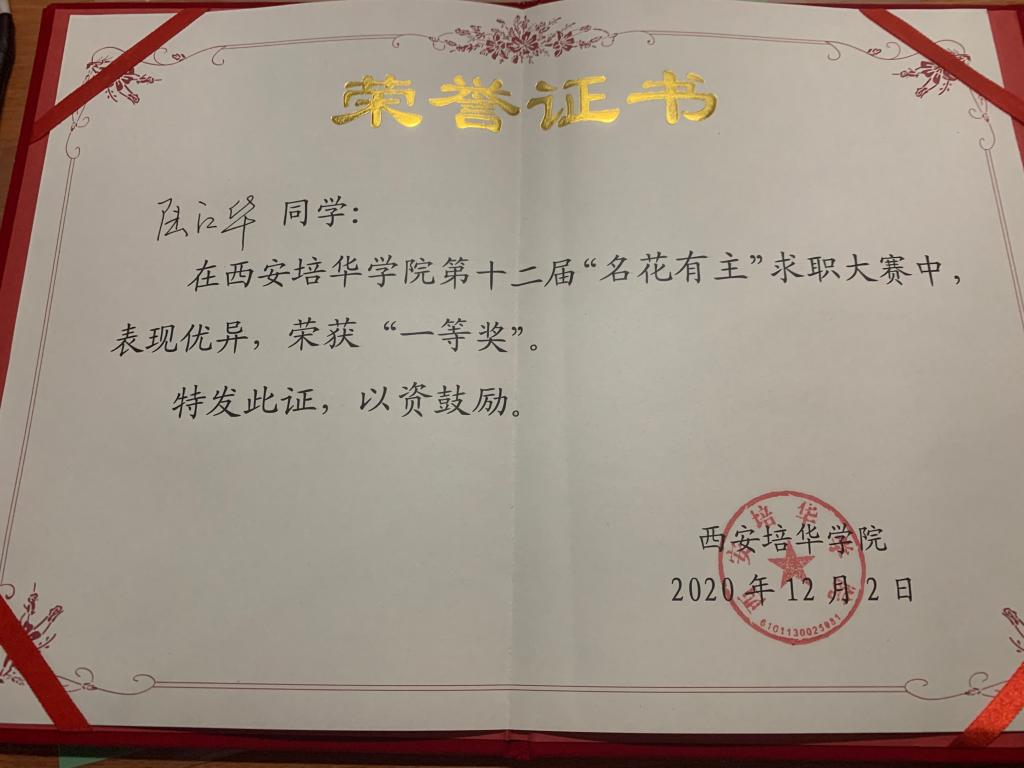 荣誉证书
陆江华 同学：
在西安培华学院第十二届“名花有主”求职大赛中，
表现优异，荣获“一等奖”。
特发此证，以资鼓励。
西安培华学院
2020年12月2日
西安培华学院